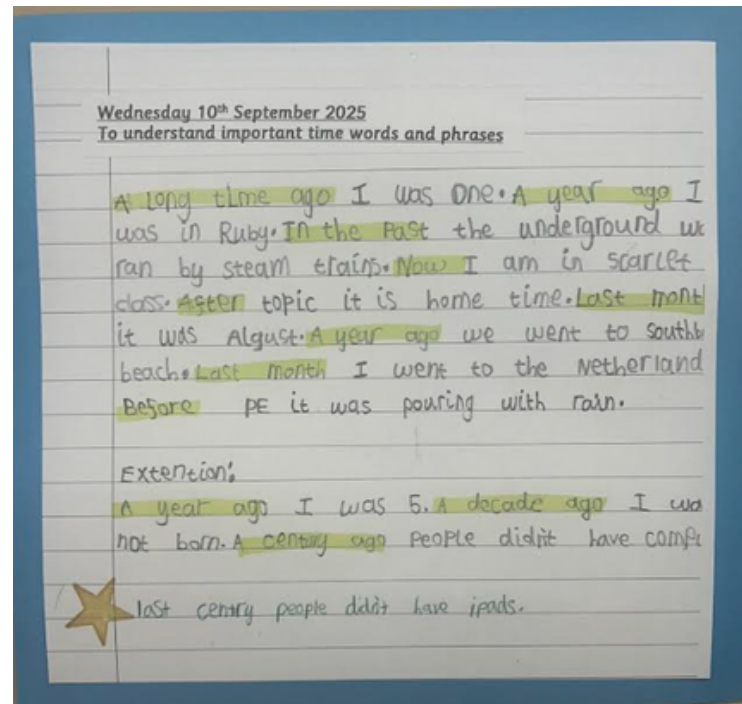 Wednesday 10th September 2025
To understand important time words and phrases
A long time ago I was one. A year ago I
was in Ruby. In the Past the underground
ran by steam trains. Now I am in scarlet
class. After topic it is home time. Last mont
it was Algust. A year ago we went to southb
beach. Last month I went to the Netherland
Before PE it was pouring with rain.
Extention:
A year ago I was 5. A decade ago I wa
not born. A century ago People didn't have
last centry people didn't have ipads.